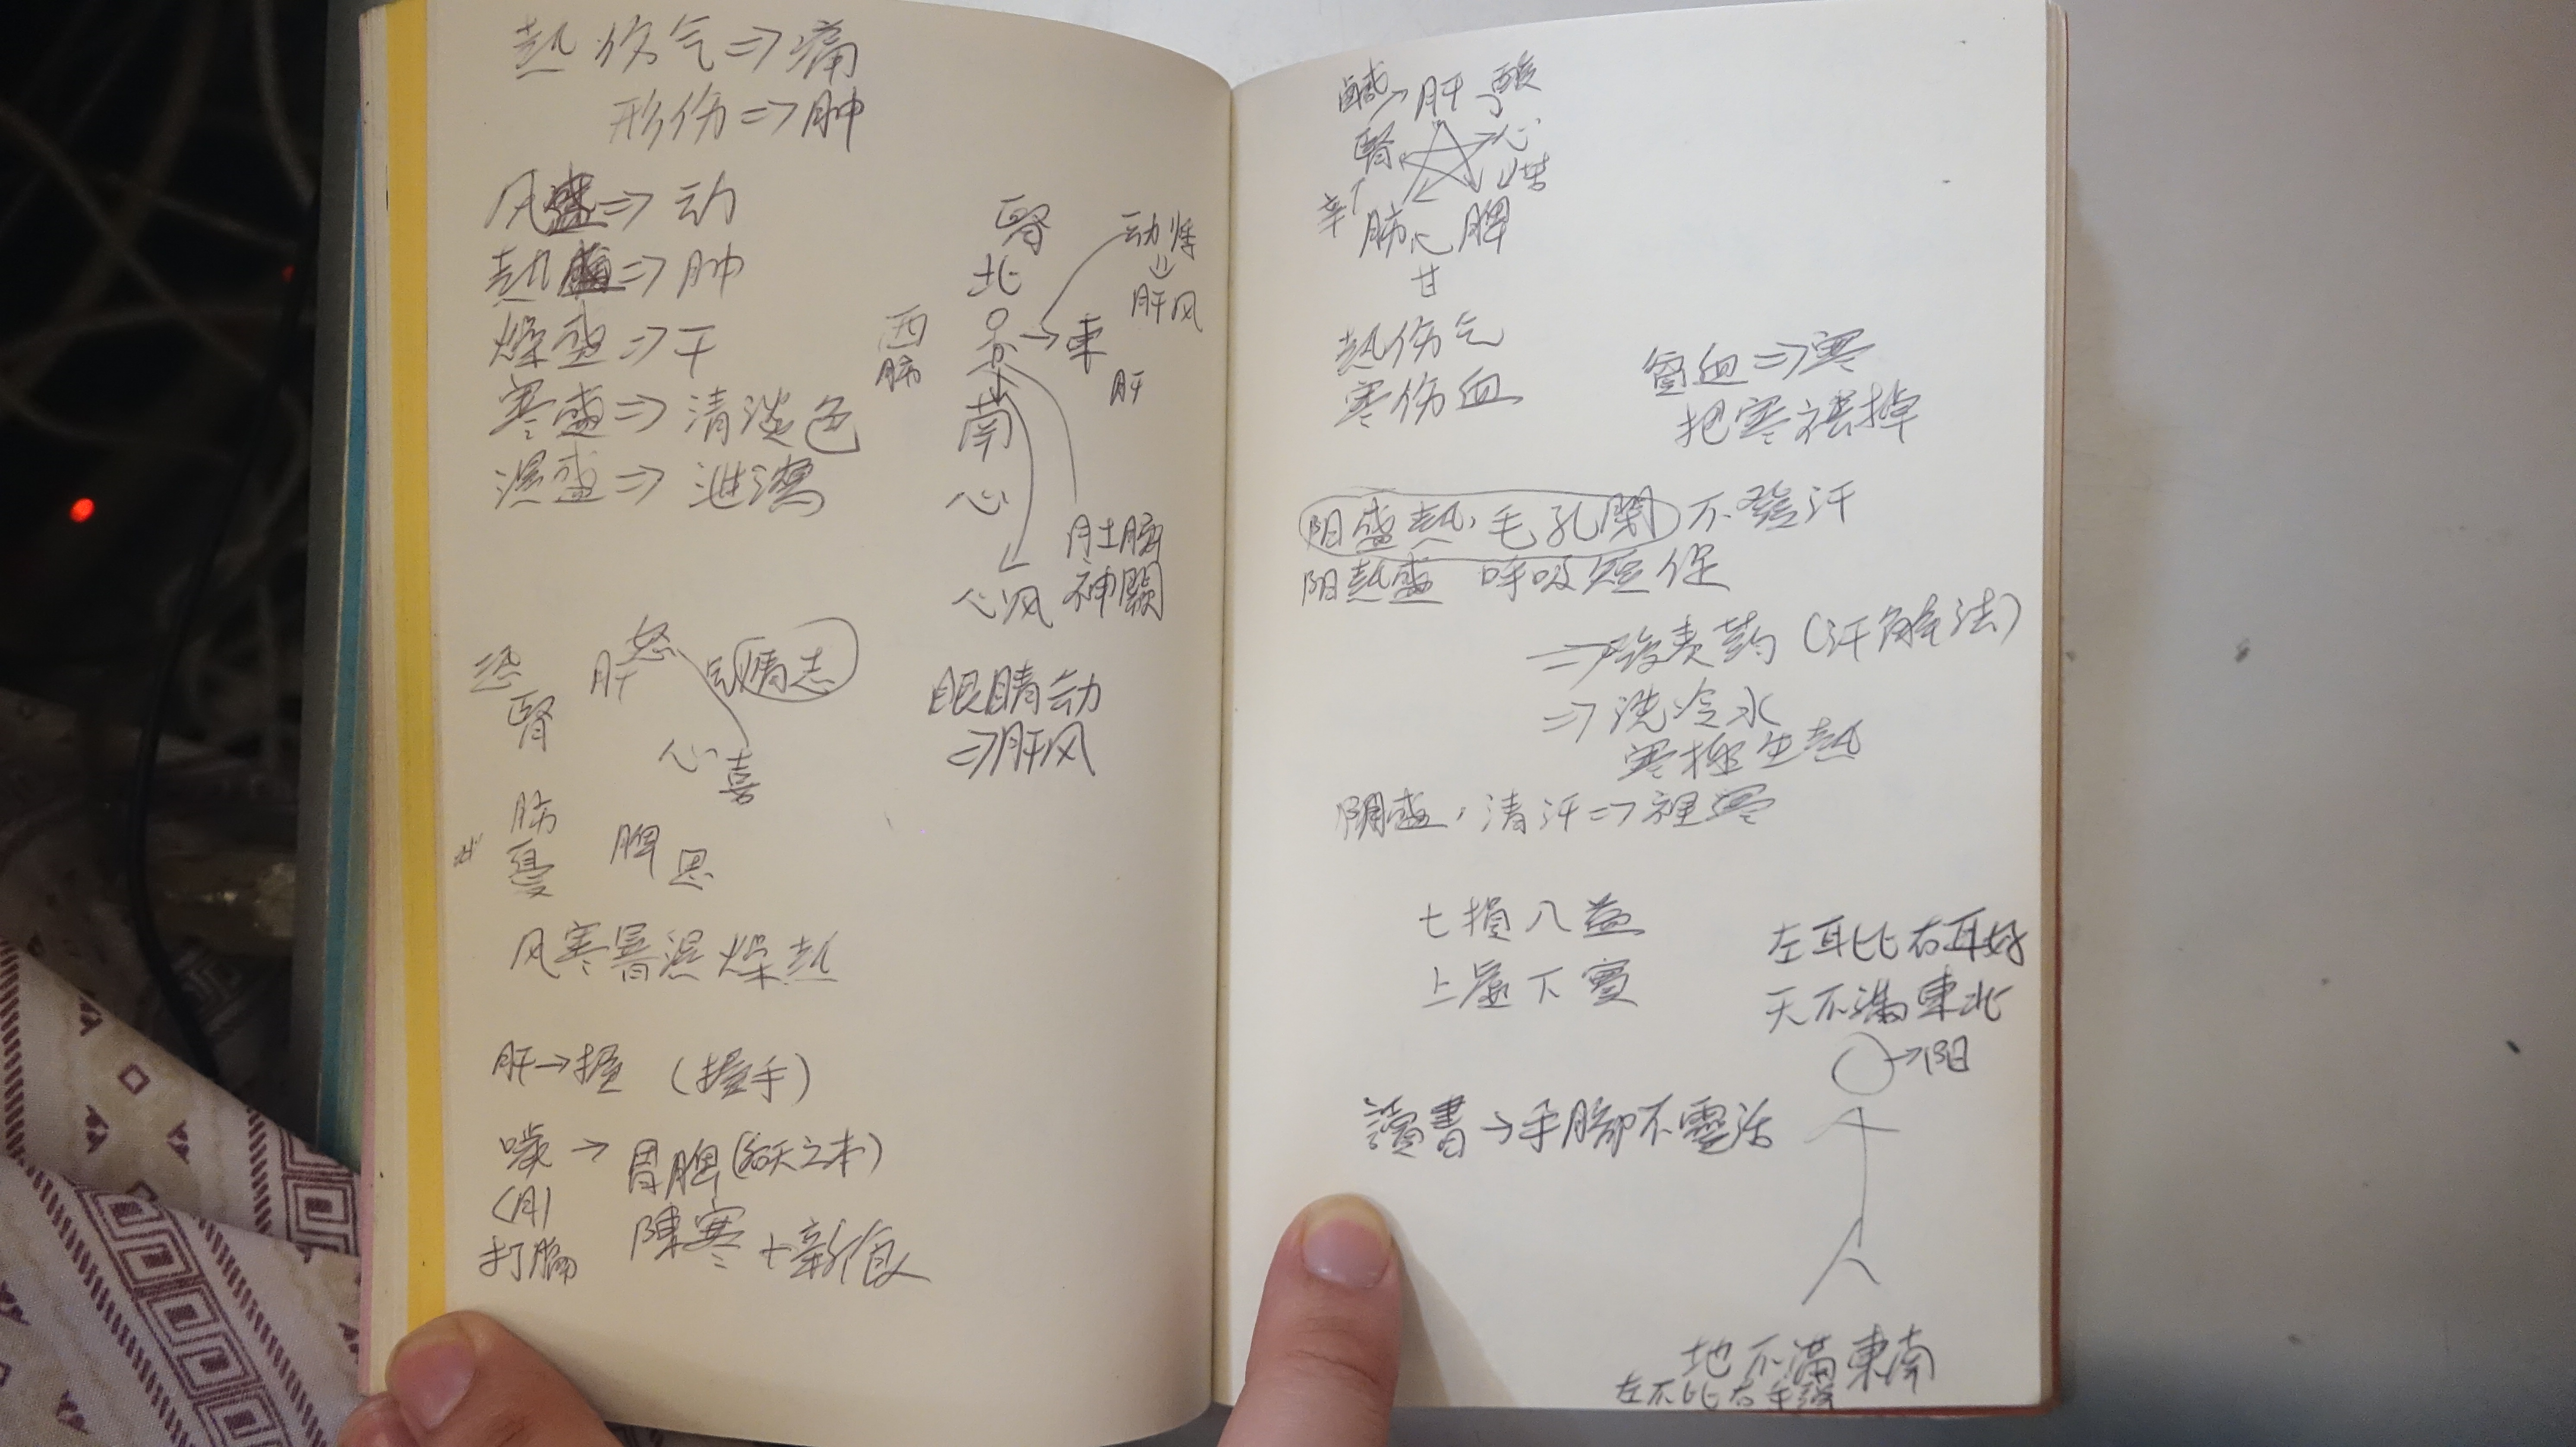 热伤气⇒痛
形伤⇒肿
风盛⇒动
热盛⇒肿
燥盛⇒干
寒盛⇒清淡色
濕盛⇒泄瀉
腎
北
西
肺
→東
肝
南
心
动
⇓
肝风
肚臍
神闕
心风
眼睛动
⇒肝风
恐
腎
肝
怒
情志
心
喜
肺
憂
脾
思
风寒暑濕燥热
肝→握 (握手)
噦→胃脾(後天之本)
(月)
打膈
陳寒+新食
鹹→肝
酸
腎
心
苦
辛
肺
脾
甘
热伤气
寒伤血
血⇒寒
把寒祛掉
阳盛热,毛孔閉 不發汗
阳热盛 呼吸短促
⇒發表药(汗解法)
⇒洗冷水
寒極生热
陰盛,清汗⇒裡寒
七損八益
上虛下實
左耳比右耳好
天不滿東北
→阳
讀書→手腳不靈活
地不滿東南
左不比右手